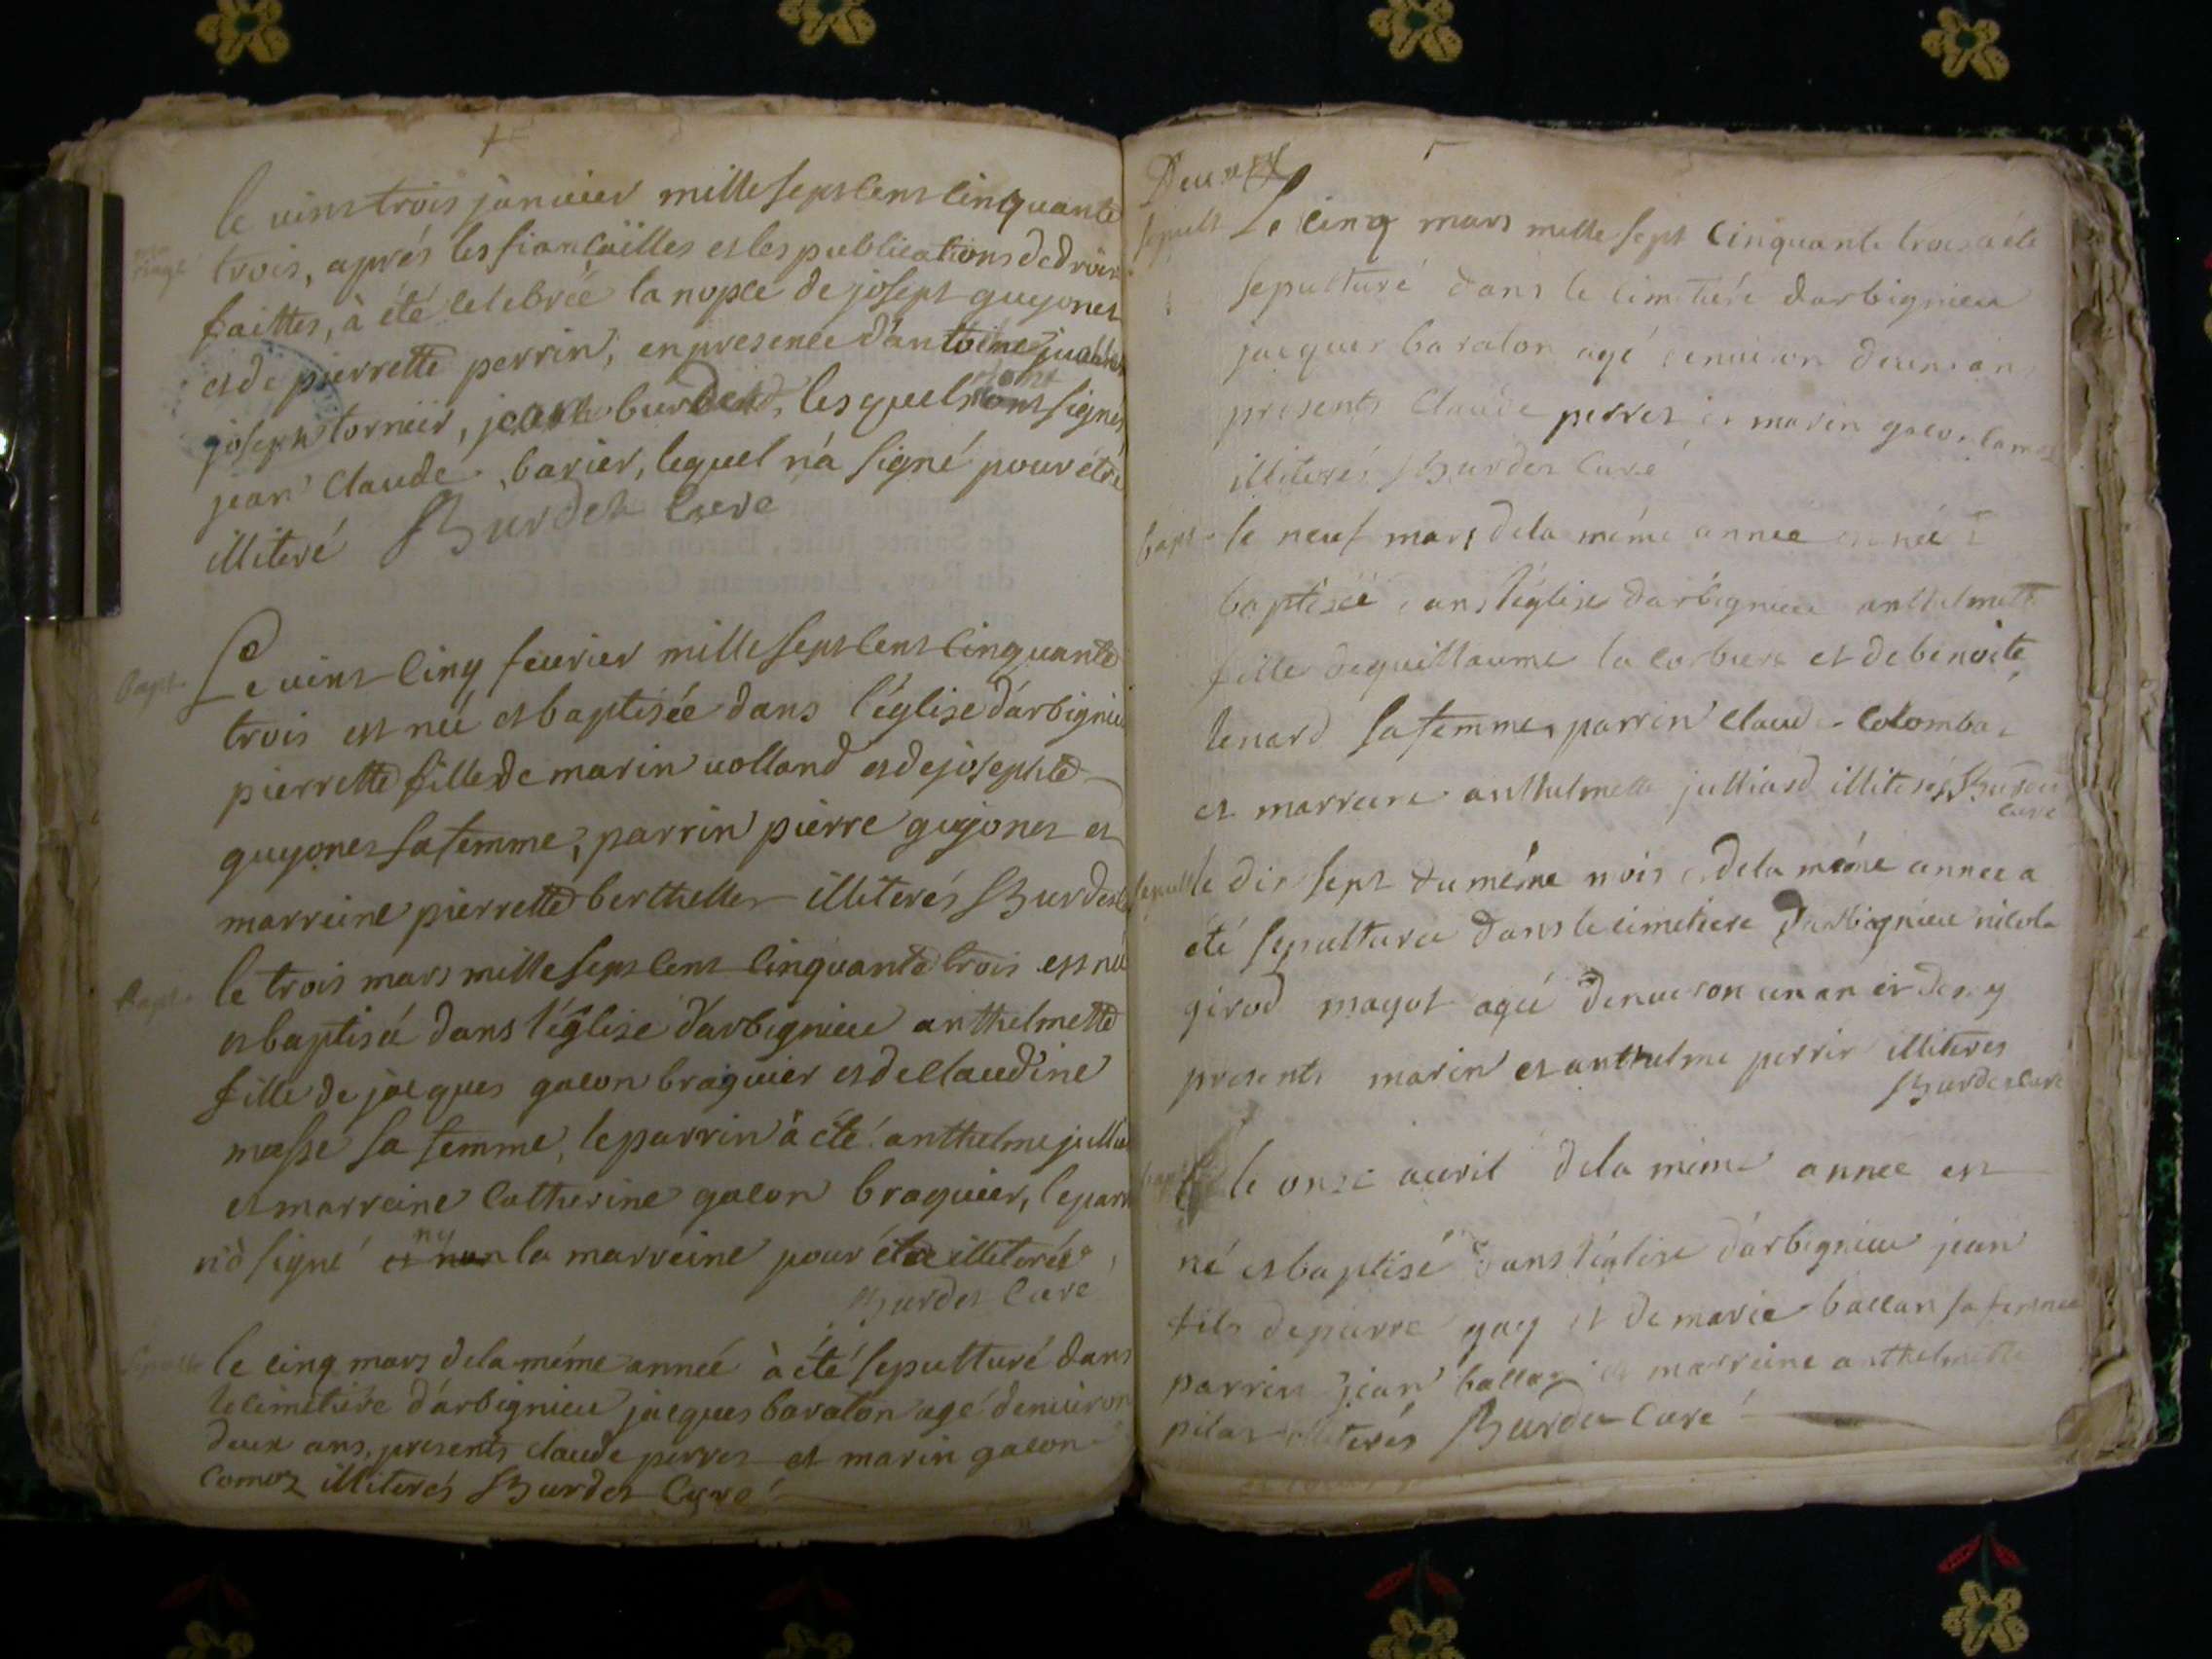 le vint trois janvier mille sept cent cinquante
mariage
trois, aprés les fiancailles et les publications de droit
faittes, à été celebrée la nopce de joseph guyonet
et de pierrette perrin, en presence d'antoine
joseph tornier, les quels ont signés
jean claude barier, lequel n'a signé pour étre
illiteré Burdet Curé
Bapt. Le vint cinq feuvrier mille sept cent cinquante
trois est née et baptisée dans l'église d'arbignieu
pierrette fille de marin volland et de josephte
guyonet sa femme, parrin pierre guyonet et
marreine pierrette berthellet illiterés Burdet
Bapt. le trois mars mille sept cent cinquante trois est née
et baptisée dans l'église d'arbignieu anthelmette
fille de jacques galon braquier et de claudine
masse sa femme, le parrin à été anthelme
et marreine Catherine galon braquier, le parrin
n'à signé et non ny la marreine pour étre illiterés
Burdet Curé
Sepult. le cinq mars de la méme année à été sepulturé dans
le cimetiére d'arbignieu jacques baraton agé denviron
deux ans, presents claude perret et marin galon
comoz illiterés Burdet Curé
Deux
sepult Le cinq mars mille sept cinquante trois a été
sepulturé dans le cimetiére darbignieu
jacques baraton agé denviron deux ans
presents Claude perret et marin galon
illiterés Burdet Curé
bapt. le neuf mars de la méme annee est née et
baptisée dans l'église d'arbignieu anthelmette
fille de guillaume la corbiere et de benoite
lenard sa femme, parrin claude Colomba
et marreine anthelmette julliard illiterés Burdet
curé
sepult le dix sept du méme mois et de la méme annee a
eté sepulturée dans le cimetiere d'arbignieu nicola
girod magot agée denviron un an et demy
presents marin et anthelme perrin illiteres
Burdet Curé
bapt le onze avril de la méme annee est
né et baptisé dans l'église d'arbignieu jean
fils de pierre guy et de marie ballan sa femme
parrin jean ballan et marreine anthelmette
pilat illiterés Burdet Curé